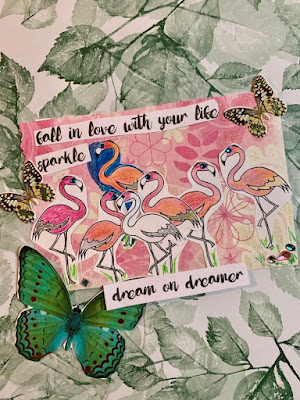 fall in love with your life
sparkle
dream on dreamer